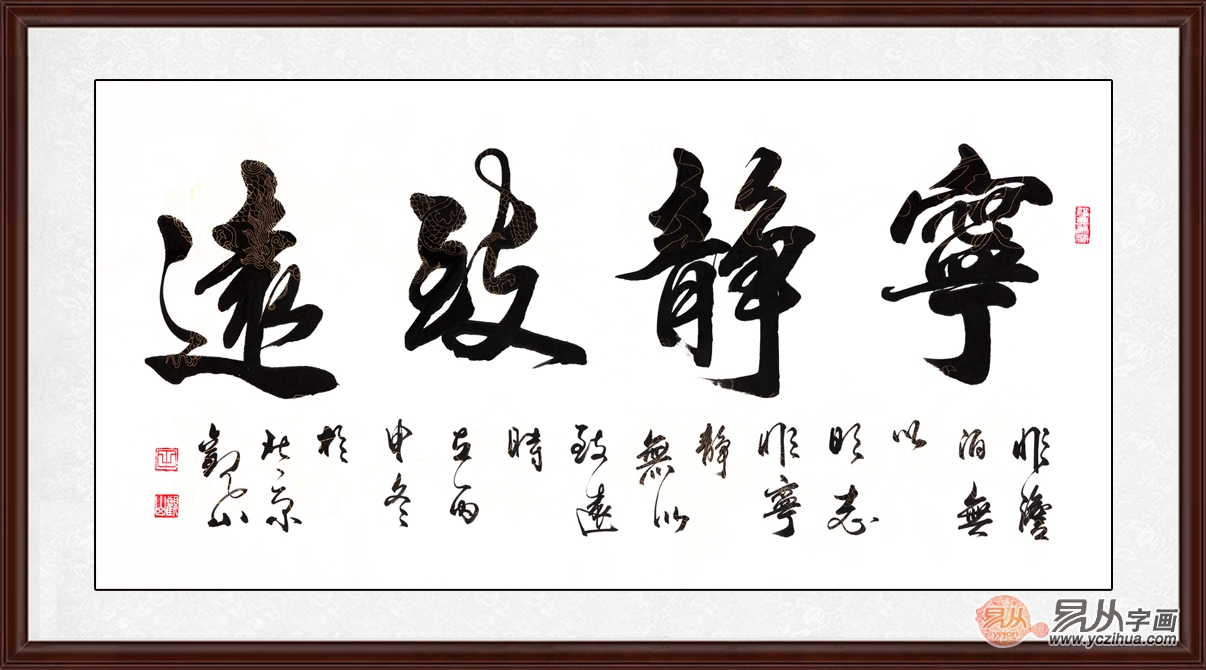 寧靜致遠
非澹
泊無
以
明志
非寧
靜
無以
致遠
時
在丙
申冬
於
北京
觀山
易从
yejon
易从字画
www.yczihua.com